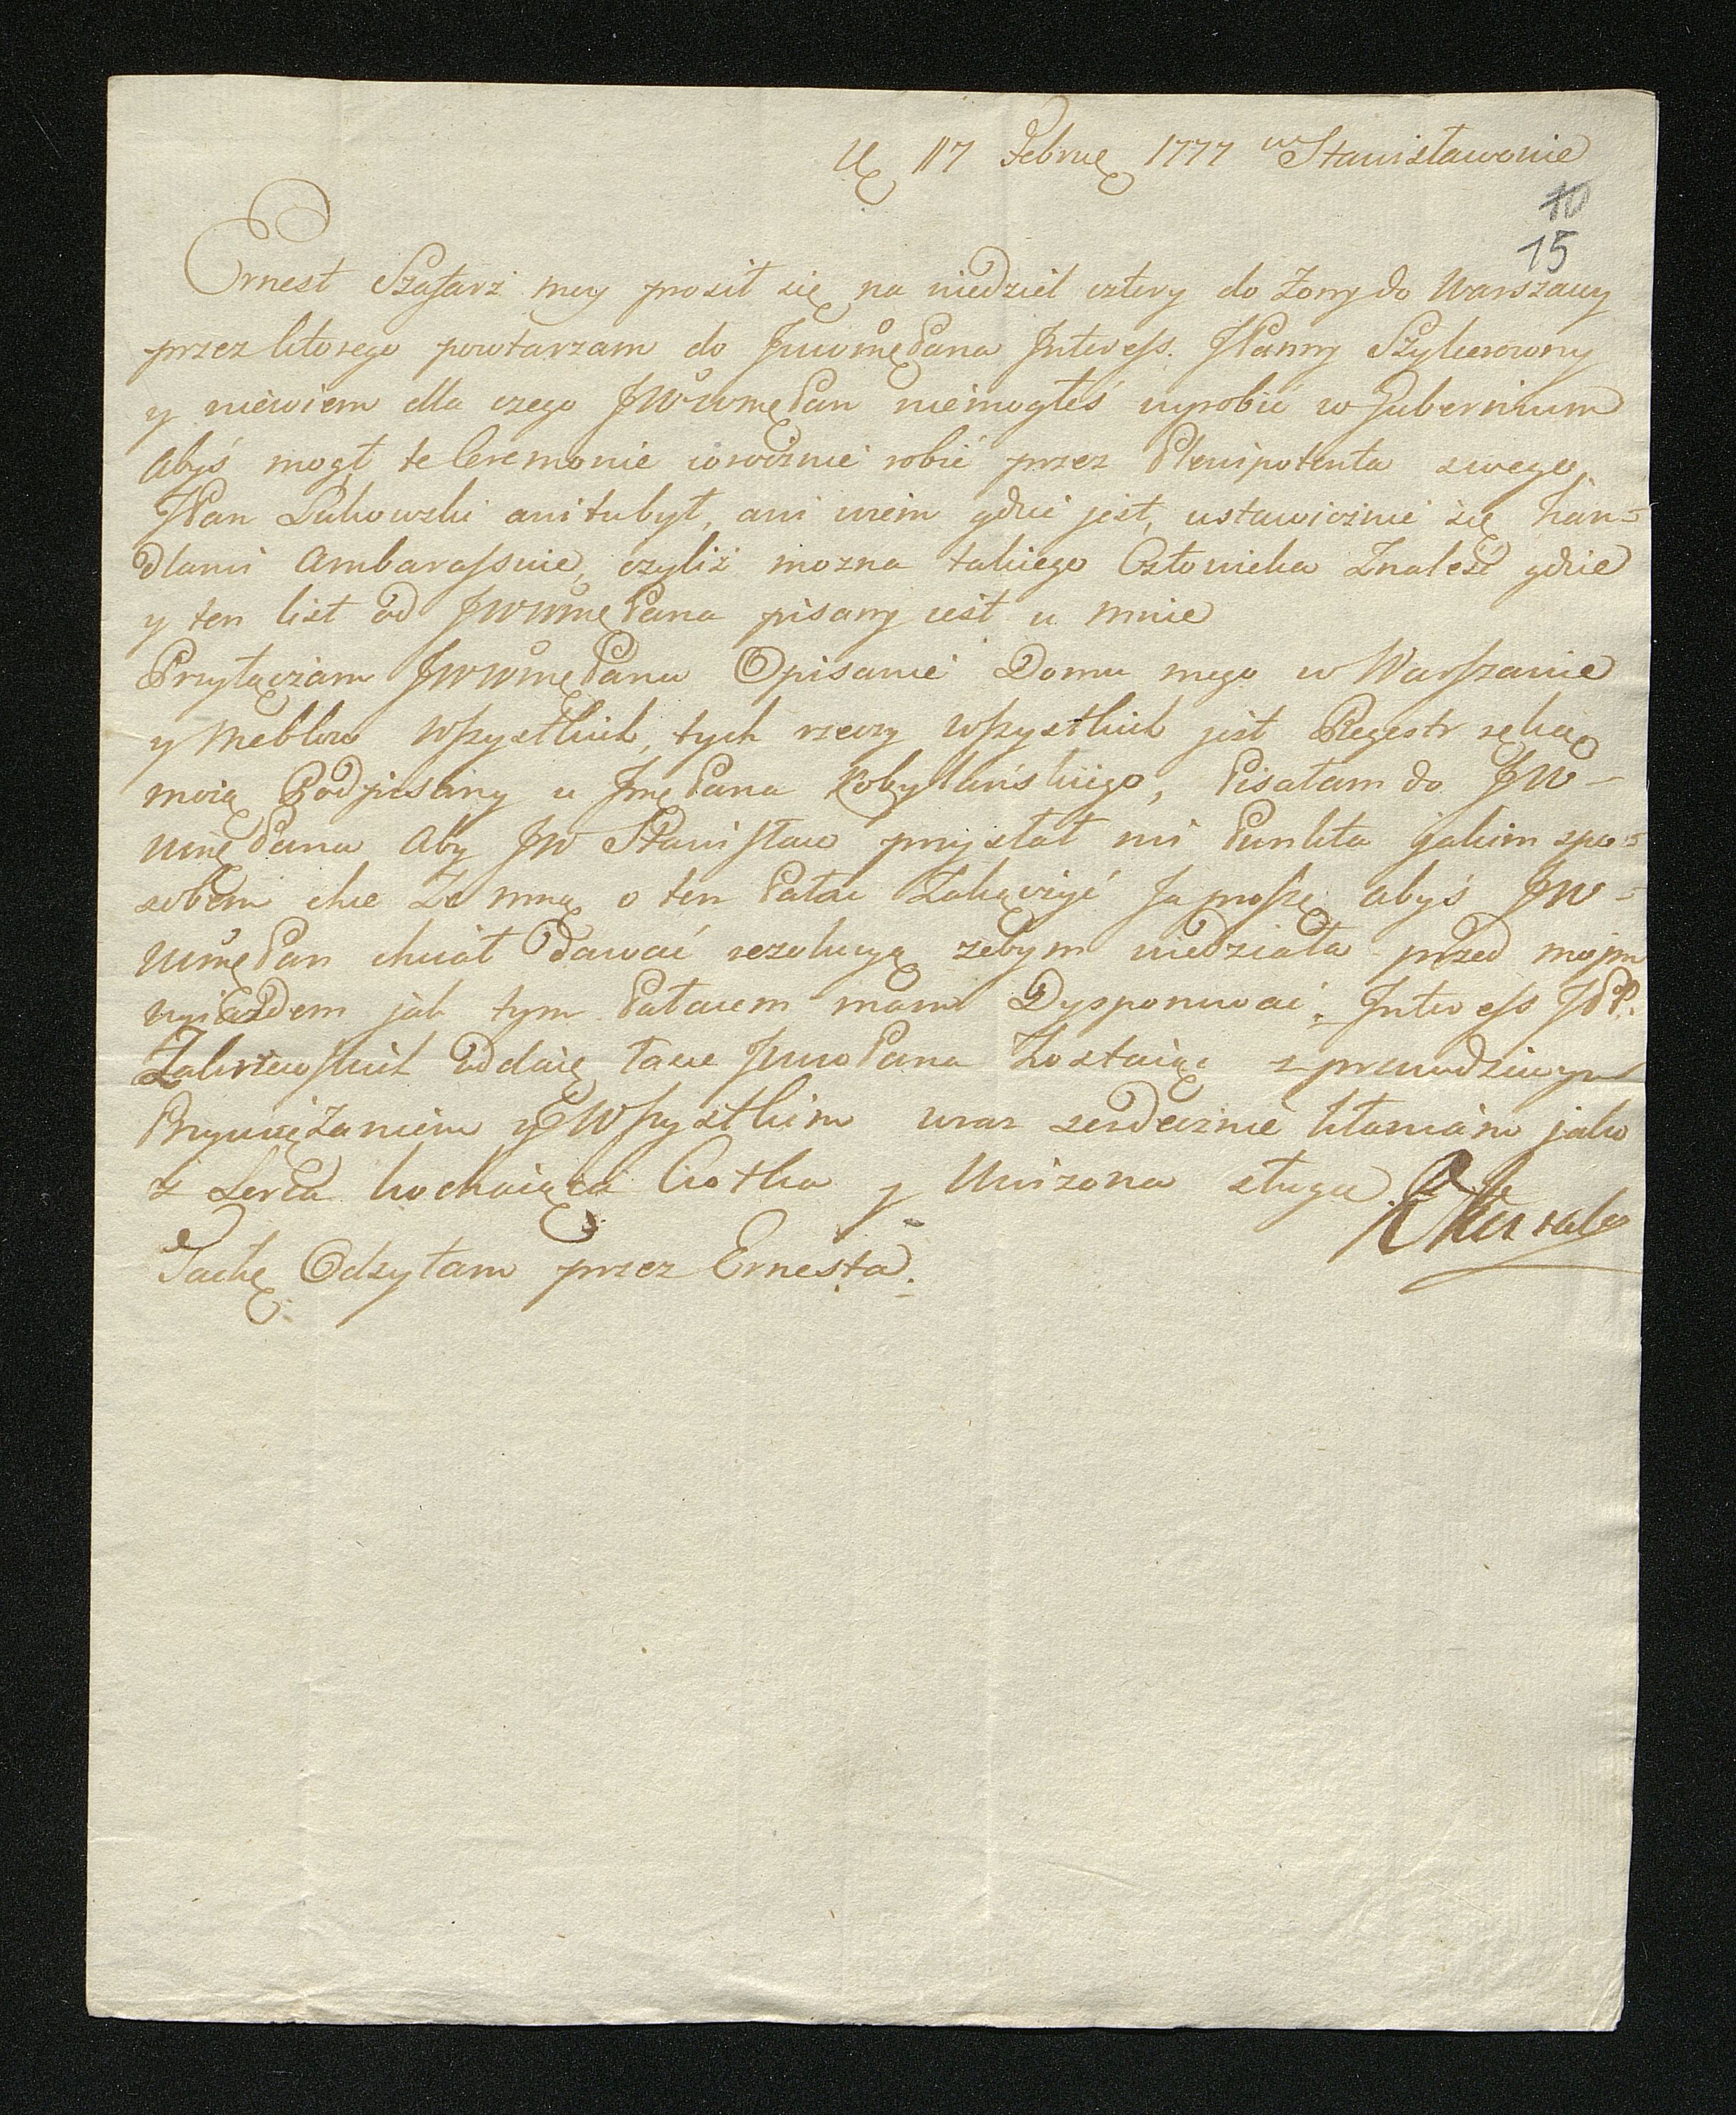 17 Febru 1777 w Stanisławowie
10
15
Ernest Szafarz mey prosił się na niedziel cztery do Zony do Warszawy
przez ktorego powtarzam do JwwmęPana Interess. JPanny Szylerowny
y niewiem dla czego JWwmęPan niemogłeś wyrobić w Gubernium
abyś mogł te Ceremonie corocznie robić przez Plenipotenta swego,
JPan Łukowski ani tu był, ani wiem gdzie jest, ustawicznie się han=
dlami Ambarassuie, czyliż mozna takiego Człowieka Znaleść gdzie
y ten list od JWWmęPana pisany iest u mnie
Przyłączam JWWmęPanu Opisanie Domu mego w Warszawie
y Meblow Wszystkich, tych rzeczy Wszystkich jest Regestr ręką
moią Podpisany u JmęPana Kobylańskiego, Pisałam do JW-
WmęPana Aby JW Stanisław przysłał mi Punkta jakim spo=
sobem chce Ze mną o ten Pałac Zakączyć Ja proszę abyś JW=
WmęPan chciał Dawać rezolucyą zebym wiedziała przed mojm
wyiazdem jak tym Pałacem mam Dysponować. Interess JPP.
Zakrzewskich oddaię łasce JwwoPana Zostaiąc z prawdziwym
Przywiązaniem y Wszystkim wraz serdecznie kłaniam jako
z Serca kochaiąca Ciotka y Unizona sługa
Tackę Odzyłam przez Ernesta.